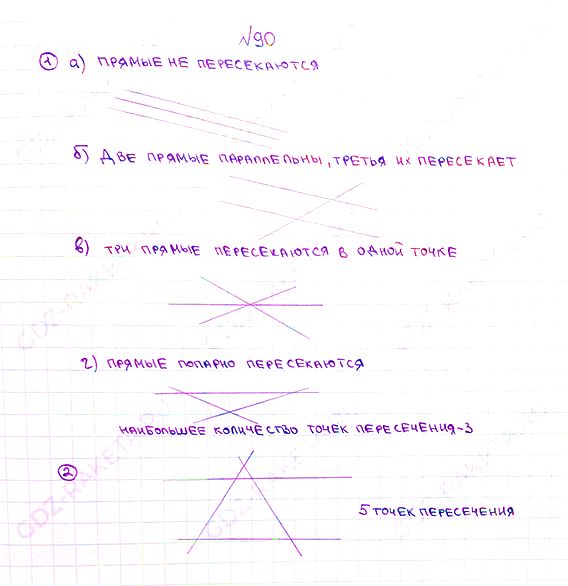 №90
① а) ПРЯМЫЕ НЕ ПЕРЕСЕКАЮТСЯ
б) ДВЕ ПРЯМЫЕ ПАРАЛЛЕЛЬНЫ, ТРЕТЬЯ ИХ ПЕРЕСЕКАЕТ
в) ТРИ ПРЯМЫЕ ПЕРЕСЕКАЮТСЯ В ОДНОЙ ТОЧКЕ
г) ПРЯМЫЕ ПОПАРНО ПЕРЕСЕКАЮТСЯ
НАИБОЛЬШЕЕ КОЛИЧЕСТВО ТОЧЕК ПЕРЕСЕЧЕНИЯ-3
②
5 ТОЧЕК ПЕРЕСЕЧЕНИЯ